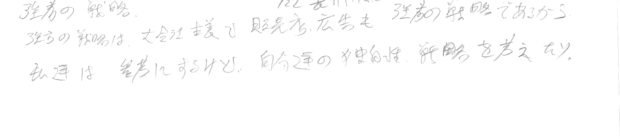 強者の戦略.
強者の戦略は、大会社様で 販売店、広告も 強者の戦略であるから
私達は 参考にするけど、自分達の独自性、戦略を考えたい。